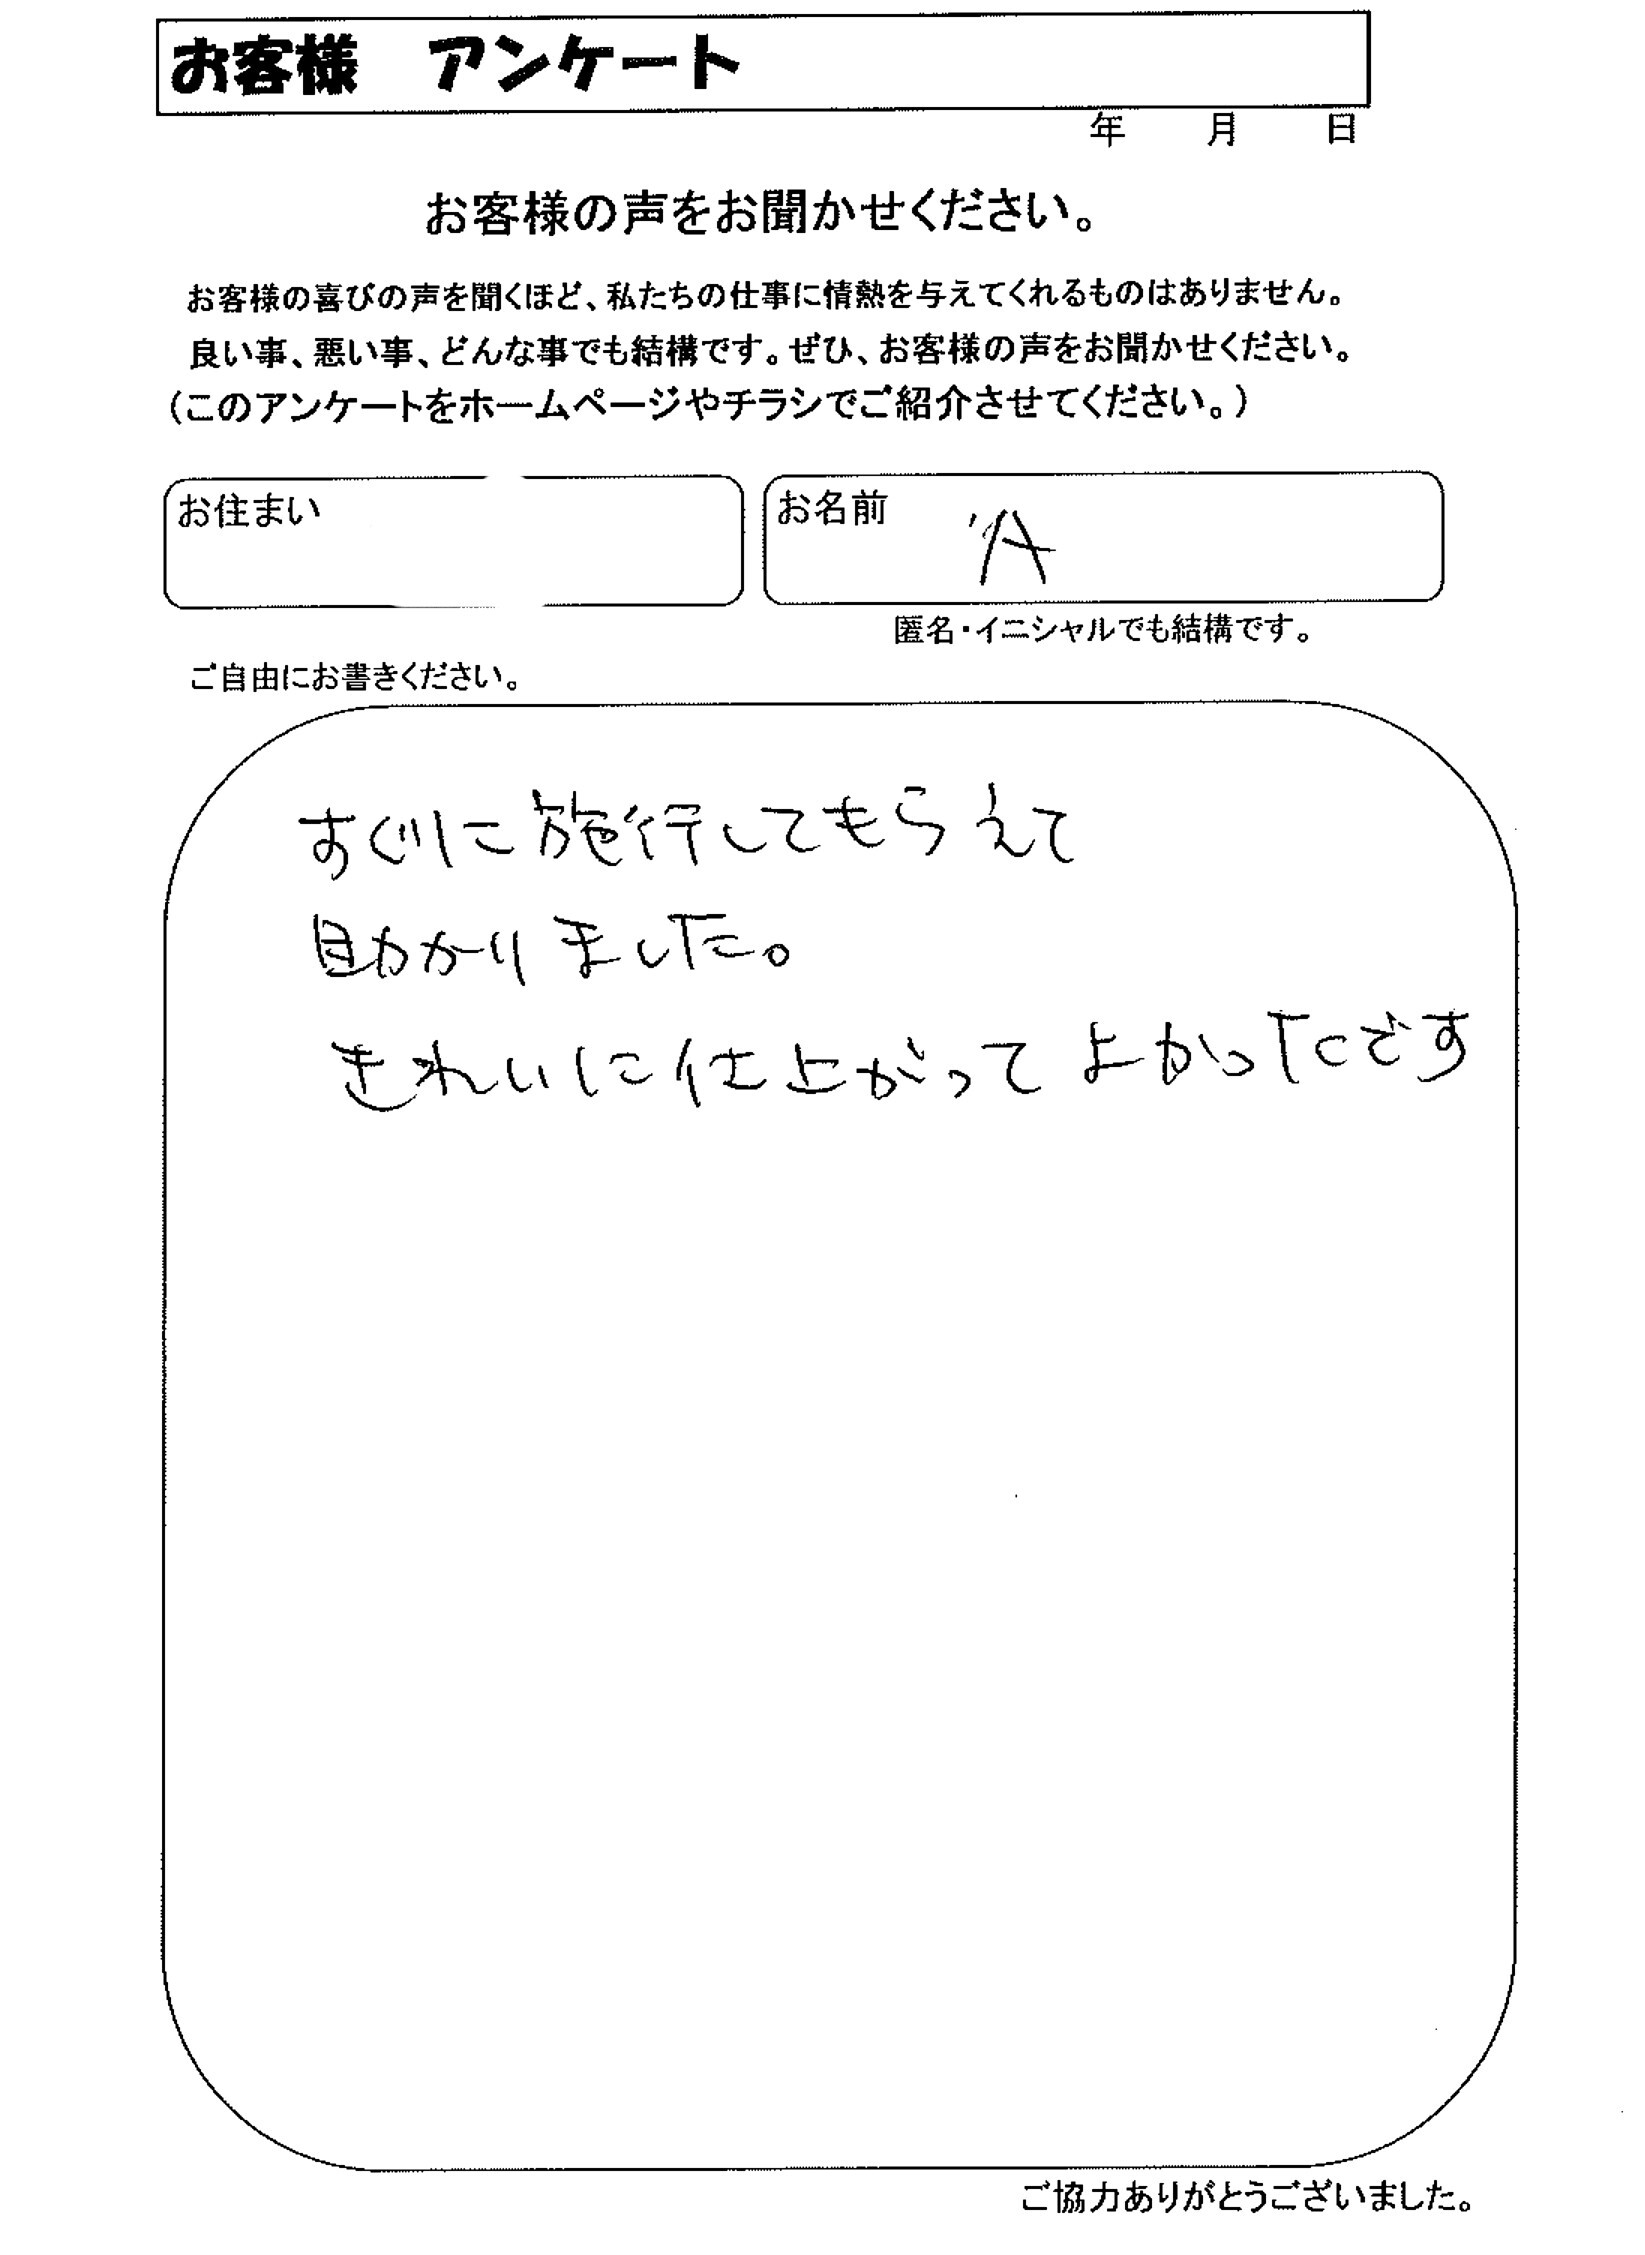 お客様　アンケート
年　月　日
お客様の声をお聞かせください。
お客様の喜びの声を聞くほど、私たちの仕事に情熱を与えてくれるものはありません。
良い事、悪い事、どんな事でも結構です。ぜひ、お客様の声をお聞かせください。
（このアンケートをホームページやチラシでご紹介させてください。）
お住まい
お名前　A
匿名・イニシャルでも結構です。
ご自由にお書きください。
すぐに施行してもらえて
助かりました。
きれいに仕上がってよかったです
ご協力ありがとうございました。